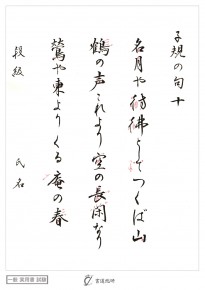 子規の句十
名月や彷彿としてつくば山
鶴の声これより空の長閑なり
鶯や東よりくる庵の春
段級　氏名
一般 実用章 試験
書道技術